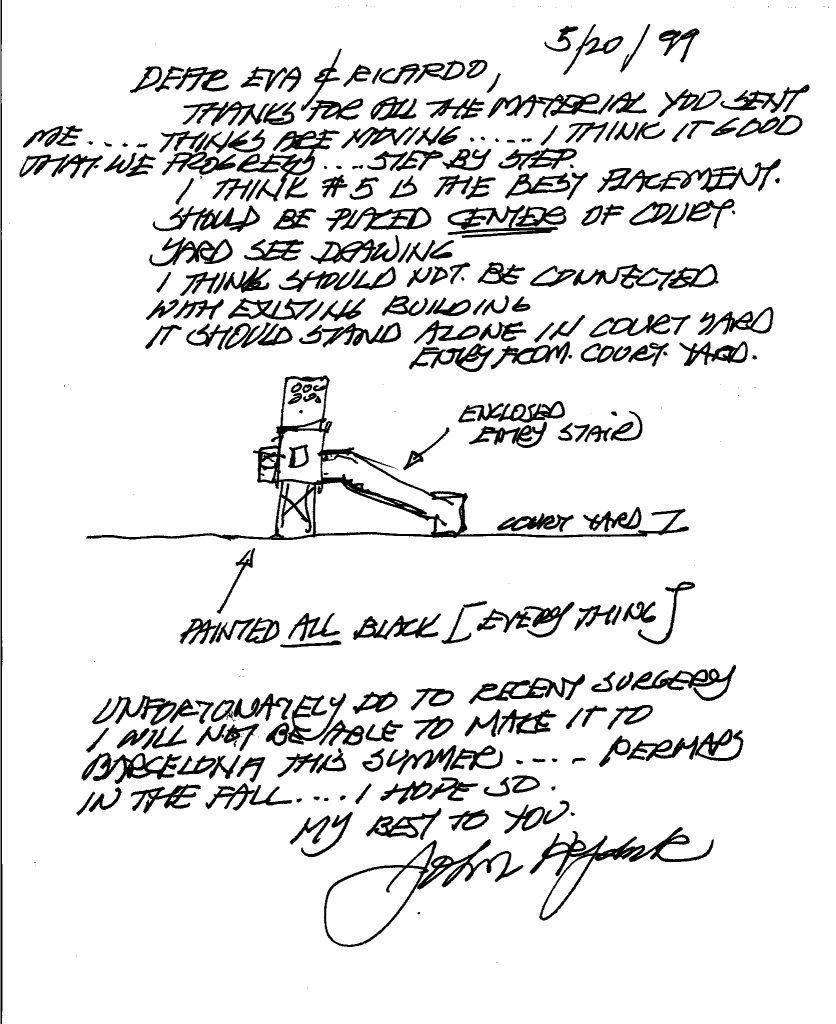 5/20/99
DEAR EVA & RICARDO,
THANKS FOR ALL THE MATERIAL YOU SENT
ME..... THINGS ARE MOVING...... I THINK IT GOOD
THAT WE PROGRESS....STEP BY STEP.
I THINK #5 IS THE BEST PLACEMENT.
SHOULD BE PLACED CENTER OF COURT.
YARD SEE DRAWING
I THINK SHOULD NOT. BE CONNECTED.
WITH EXISTING BUILDING
IT SHOULD STAND ALONE IN COURT YARD
ENTRY FROM. COURT. YARD.
ENCLOSED
ENTRY STAIR
COURT YARD
PAINTED ALL BLACK [EVERY THING]
UNFORTUNATELY DO TO RECENT SURGERY
I WILL NOT BE ABLE TO MAKE IT TO
BARCELONA THIS SUMMER ..... PERHAPS
IN THE FALL....I HOPE SO.
MY BEST TO YOU.
John Hejduk